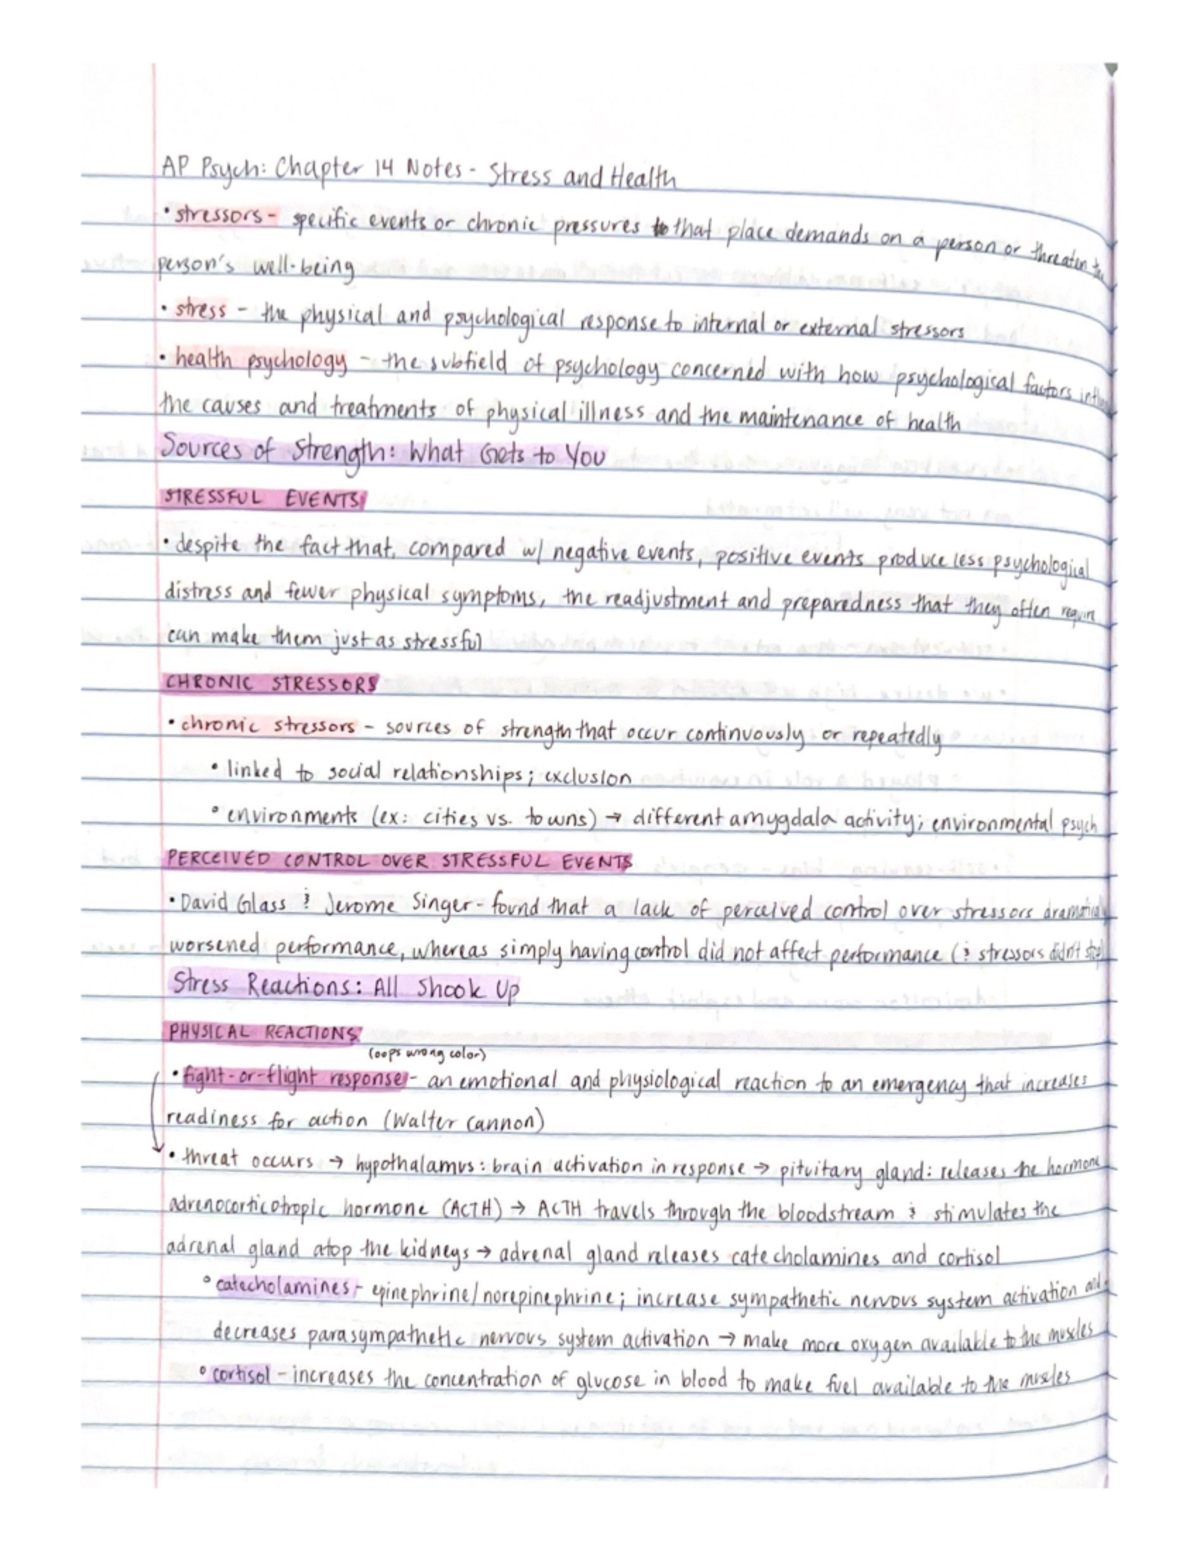 AP Psych: Chapter 14 Notes - Stress and Health
• stressors - specific events or chronic pressures that place demands on a person or threaten the
person's well-being
• stress - the physical and psychological response to internal or external stressors
• health psychology - the subfield of psychology concerned with how psychological factors
the causes and treatments of physical illness and the maintenance of health
Sources of Strength: What Gets to You
STRESSFUL EVENTS
• despite the fact that, compared w/ negative events, positive events produce less psychological
distress and fewer physical symptoms, the readjustment and preparedness that they often require
can make them just as stressful
CHRONIC STRESSORS
• chronic stressors - sources of strength that occur continuously or repeatedly
• linked to social relationships; exclusion
• environments (ex: cities vs. towns) → different amygdala activity; environmental psych
PERCEIVED CONTROL OVER STRESSFUL EVENTS
• David Glass & Jerome Singer - found that a lack of perceived control over stressors dramatically
worsened performance, whereas simply having control did not affect performance (& stressors didn't stop)
Stress Reactions: All Shook Up
PHYSICAL REACTIONS
(oops wrong color)
• fight-or-flight response - an emotional and physiological reaction to an emergency that increases
readiness for action (Walter Cannon)
• threat occurs → hypothalamus: brain activation in response → pituitary gland: releases the hormone
adrenocorticotropic hormone (ACTH) → ACTH travels through the bloodstream & stimulates the
adrenal gland atop the kidneys → adrenal gland releases catecholamines and cortisol
• catecholamines - epinephrine/norepinephrine; increase sympathetic nervous system activation and
decreases parasympathetic nervous system activation → make more oxygen available to the muscles
• cortisol - increases the concentration of glucose in blood to make fuel available to the muscles